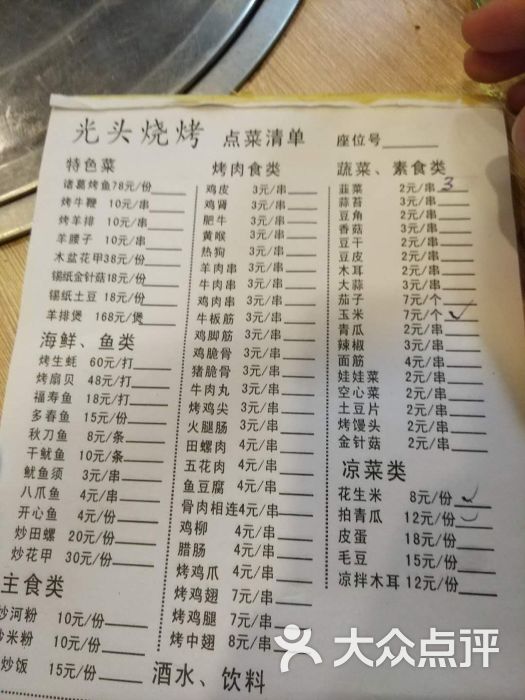 光头烧烤 点菜清单 座位号
特色菜
诸葛烤鱼78元/份
烤牛鞭 10元/串
烤羊排 10元/串
羊腰子 10元/串
木盆花甲38元/份
锡纸金针菇18元/份
锡纸土豆 18元/份
羊排煲 168元/煲
海鲜、鱼类
烤生蚝 60元/打
烤扇贝 48元/打
福寿鱼 18元/打
多春鱼 15元/份
秋刀鱼 8元/条
干鱿鱼 10元/条
鱿鱼须 3元/串
八爪鱼 4元/串
开心鱼 4元/份
炒田螺 20元/份
炒花甲 30元/份
主食类
炒河粉 10元/份
炒米粉 10元/份
炒饭 15元/份
烤肉食类
鸡皮 3元/串
鸡肾 3元/串
肥牛 3元/串
黄喉 3元/串
热狗 3元/串
羊肉串 3元/串
牛肉串 3元/串
鸡肉串 3元/串
牛板筋 3元/串
鸡脚筋 3元/串
鸡脆骨 3元/串
猪脆骨 3元/串
牛肉丸 3元/串
烤鸡尖 3元/串
火腿肠 3元/串
田螺肉 3元/串
五花肉 3元/串
鱼豆腐 3元/串
骨肉相连4元/串
鸡柳 4元/串
腊肠 4元/串
烤鸡爪 4元/串
烤鸡翅 7元/串
烤鸡腿 7元/串
烤中翅 8元/串
酒水、饮料
蔬菜、素食类
韭菜 2元/串 3
蒜苔 3元/串
豆角 2元/串
香菇 3元/串
豆干 2元/串
豆皮 2元/串
木耳 2元/串
大蒜 3元/串
茄子 7元/个
玉米 7元/个 ✓
青瓜 2元/串
辣椒 3元/串
面筋 4元/串
娃娃菜 2元/串
空心菜 2元/串
土豆片 2元/串
烤馒头 2元/串
金针菇 2元/串
凉菜类
花生米 8元/份 ✓
拍青瓜 12元/份 ✓
皮蛋 18元/份
毛豆 15元/份
凉拌木耳 12元/份
大众点评